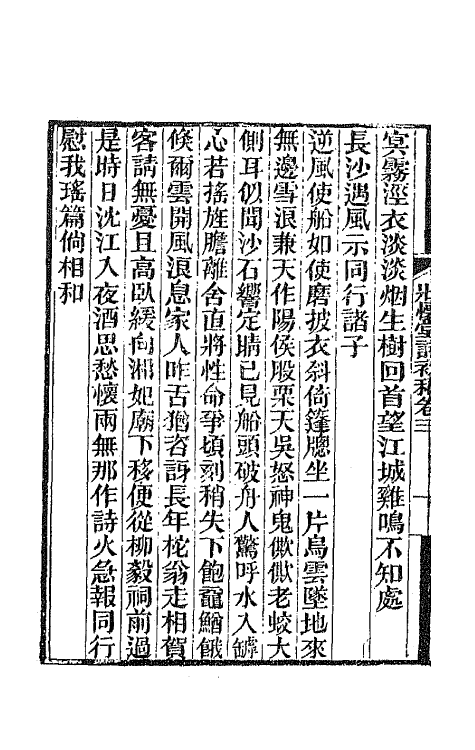 冥霧溼衣淡淡烟生樹回首望江城雞鳴不知處
長沙遇風示同行諸子
逆風使船如使磨披衣斜倚篷牕坐一片烏雲墜地來
無邊雪浪兼天作陽侯股栗天吳怒神鬼歘歘老蛟大
側耳似聞沙石響定睛已見船頭破舟人驚呼水入罅
心若搖旌膽離舍直將性命爭頃刻稍失下飽黿鰌餓
倏爾雲開風浪息家人咋舌猶咨訝長年柁翁走相賀
客請無憂且高臥緩向湘妃廟下移便從柳毅祠前過
是時日沈江入夜酒思愁懷兩無那作詩火急報同行
慰我瑤篇倘相和
壯懷堂詩初稿卷三